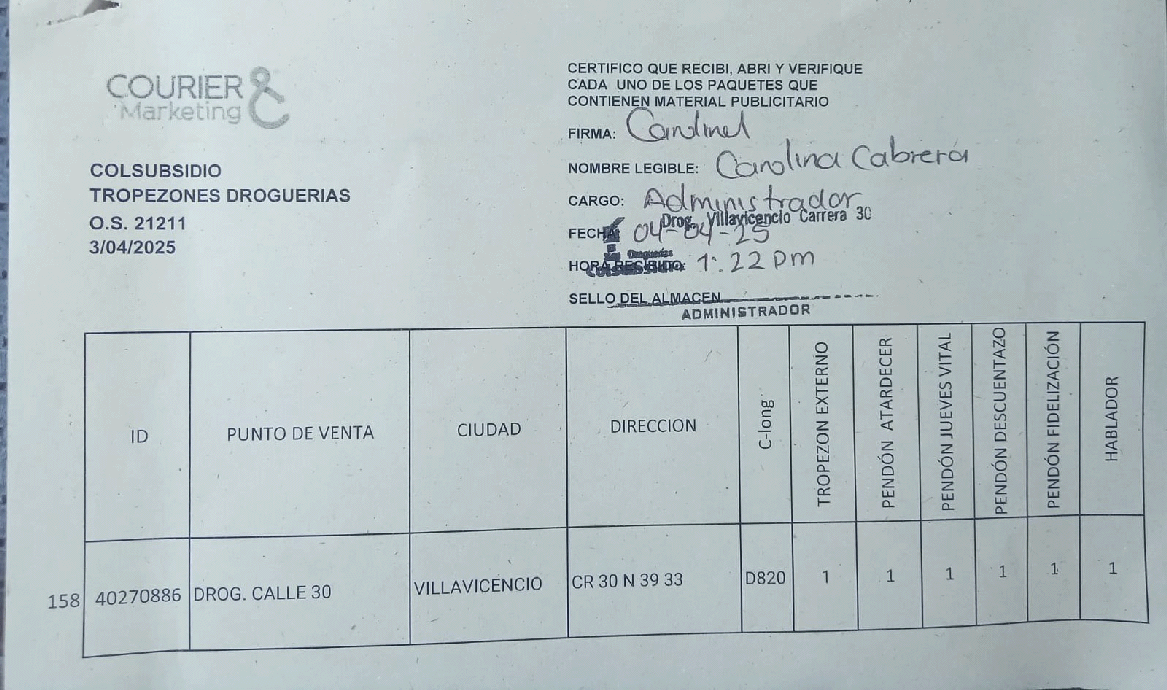 COURIER &
Marketing
COLSUBSIDIO
TROPEZONES DROGUERIAS
O.S. 21211
3/04/2025
CERTIFICO QUE RECIBI, ABRI Y VERIFIQUE
CADA UNO DE LOS PAQUETES QUE
CONTIENEN MATERIAL PUBLICITARIO
FIRMA:
NOMBRE LEGIBLE: Carolina Cabrera
CARGO: Administrador
Drog. Villavicencio Carrera 30
FECHA: 04-04-25
Droguerías
HORA RECIBIDO: 1:22 pm
Colsubsidio
SELLO DEL ALMACEN
ADMINISTRADOR
ID PUNTO DE VENTA CIUDAD DIRECCION C-long TROPEZON EXTERNO PENDÓN ATARDECER PENDÓN JUEVES VITAL PENDÓN DESCUENTAZO PENDÓN FIDELIZACIÓN HABLADOR
158 40270886 DROG. CALLE 30 VILLAVICENCIO CR 30 N 39 33 D820 1 1 1 1 1 1